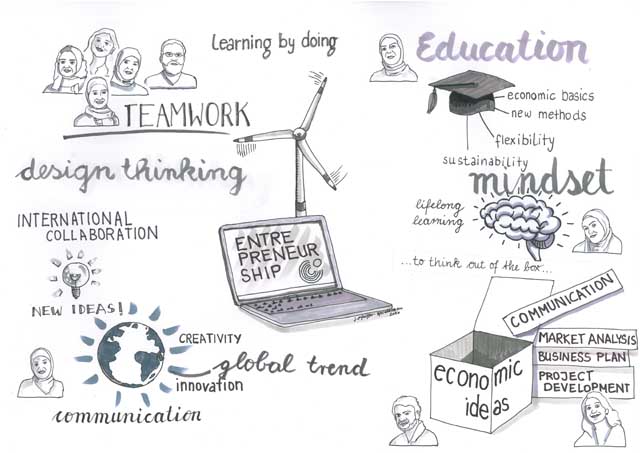 Learning by doing
TEAMWORK
design thinking
INTERNATIONAL
COLLABORATION
NEW IDEAS!
CREATIVITY
global trend
innovation
communication
ENTRE
PRENEUR
SHIP
Education
economic basics
new methods
flexibility
sustainability
mindset
lifelong
learning
...to think out of the box...
COMMUNICATION
MARKET ANALYSIS
BUSINESS PLAN
PROJECT
DEVELOPMENT
economic
ideas